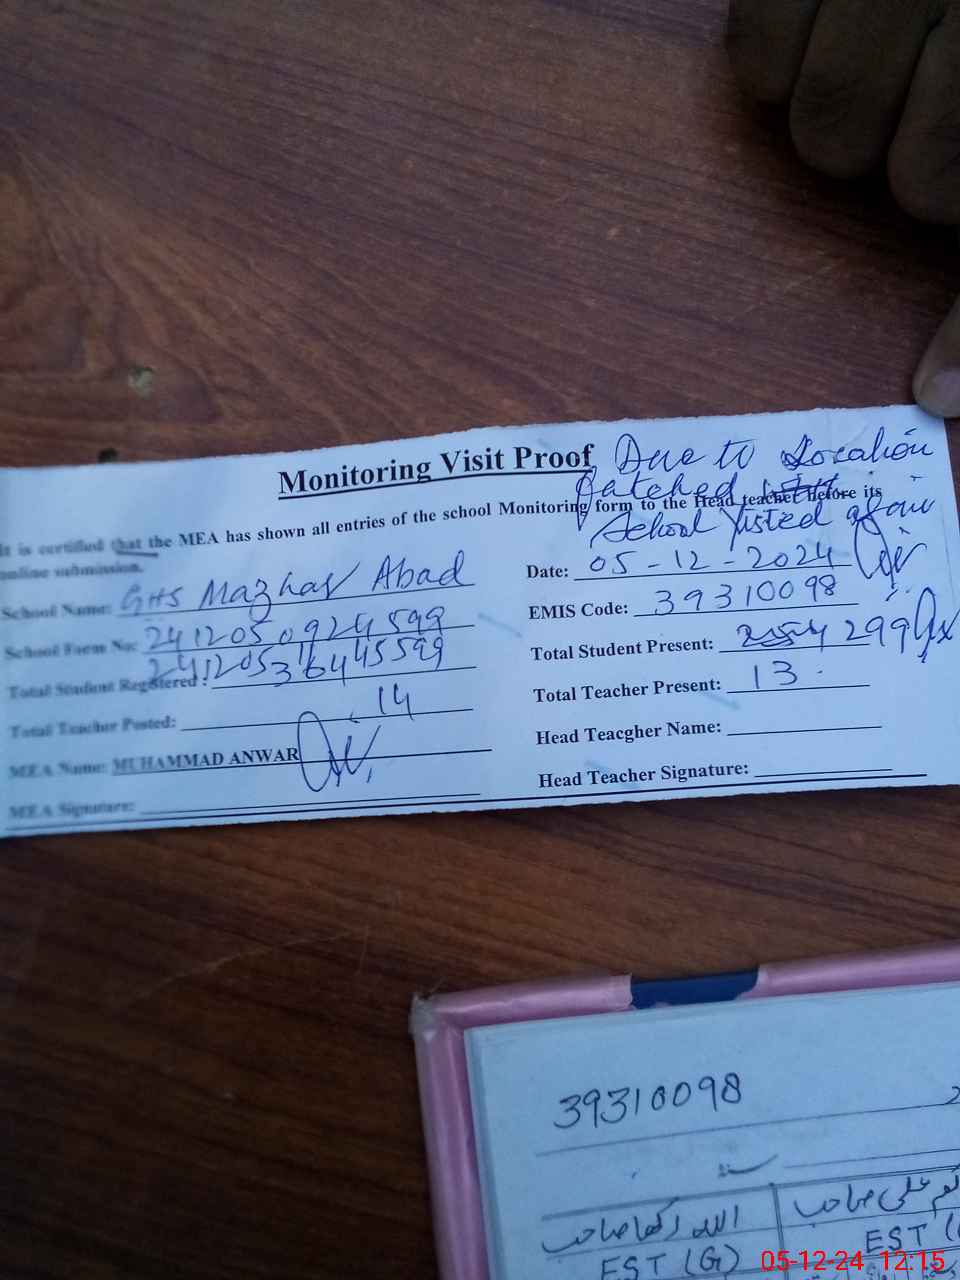 Monitoring Visit Proof
Due to Location
fatched
School visted again
It is certified that the MEA has shown all entries of the school Monitoring form to the Head teacher before its
online submission.
School Name: GHS Mazhar Abad
Date: 05-12-2024
School Form No: 2412050924599
EMIS Code: 39310098
24120536445599
Total Student Registered:
Total Student Present: 299
Total Teacher Posted: 14
Total Teacher Present: 13
MEA Name: MUHAMMAD ANWAR
Head Teacgher Name:
MEA Signature:
Head Teacher Signature:
39310098
2
اللہ رکھا صاحب
علی صاحب
EST (G)
EST (
05-12-24 12:15